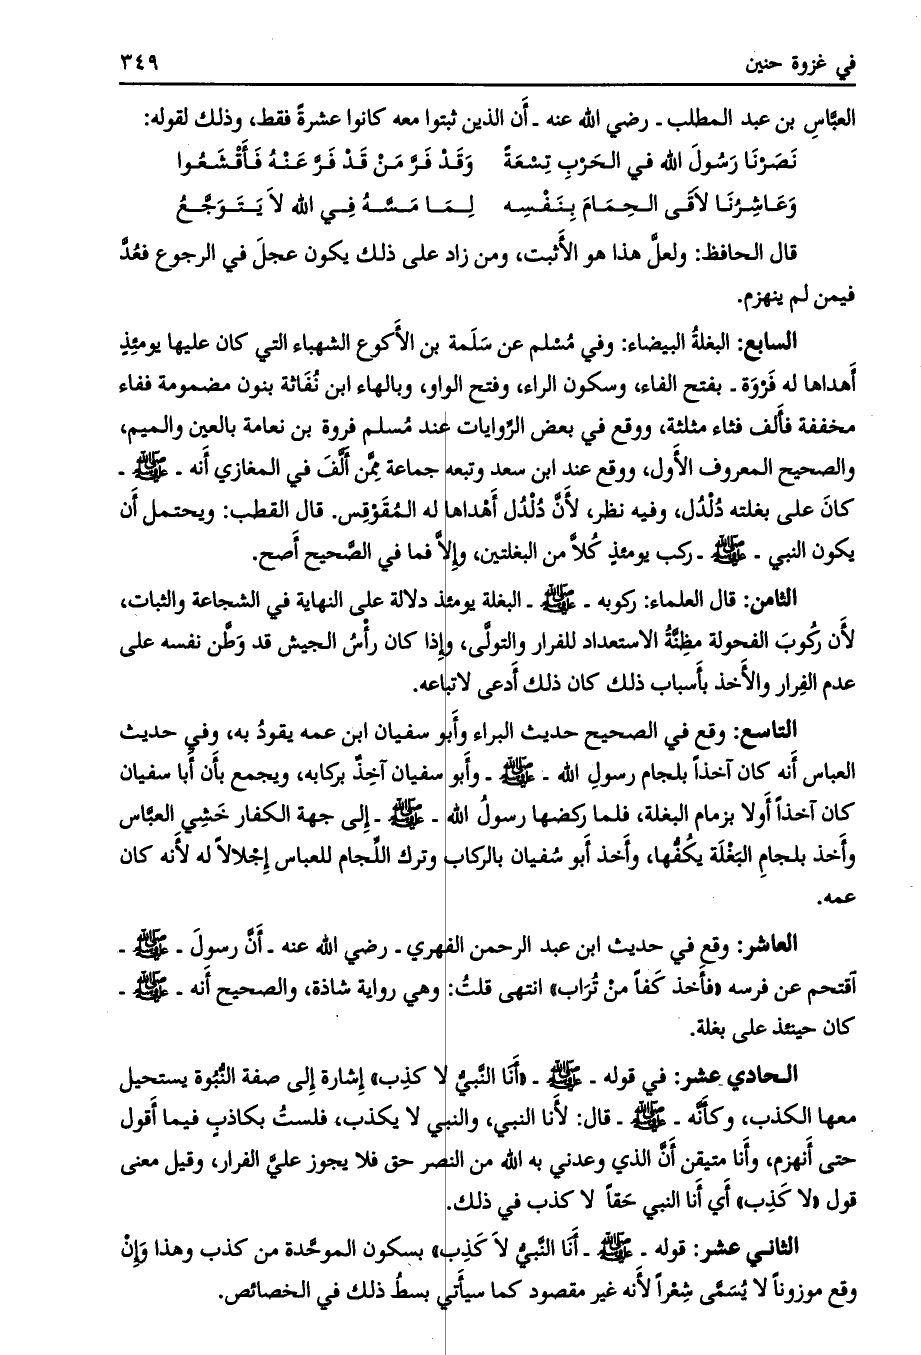 في غزوة حنين ٣٤٩
العبَّاسِ بن عبد المطلب ـ رضي الله عنه ـ أَن الذين ثبتوا معه كانوا عشرةً فقط، وذلك لقوله:
نَصَرْنَا رَسُولَ الله في الحَرْبِ تِسْعَةً وَقَدْ فَرَّ مَنْ قَدْ فَرَّ عَنْهُ فَأَقْشَعُوا
وَعَاشِرُنَا لاَقَى الحِمَامَ بِنَفْسِهِ لِمَا مَسَّهُ فِي الله لاَ يَتَوَجَّعُ
قال الحافظ: ولعلَّ هذا هو الأَثبت، ومن زاد على ذلك يكون عجلَ في الرجوع فعُدَّ
فيمن لم ينهزم.
السابع: البغلةُ البيضاء: وفي مُسْلم عن سَلَمة بن الأَكوع الشهباء التي كان عليها يومئِذٍ
أَهداها له فَرْوَة ـ بفتح الفاء، وسكون الراء، وفتح الواو، وبالهاء ابن نُفَاثة بنون مضمومة ففاء
مخففة فأَلف فثاء مثلثة، ووقع في بعض الرِّوايات عند مُسلم فروة بن نعامة بالعين والميم،
والصحيح المعروف الأَول، ووقع عند ابن سعد وتبعه جماعة ممَّن أَلَّفَ في المغازي أَنه ـ ﷺ ـ
كانَ على بغلته دُلْدُل، وفيه نظر، لأَنَّ دُلْدُل أَهْداها له المُقَوْقِس. قال القطب: ويحتمل أَن
يكون النبي ـ ﷺ ـ ركب يومئذٍ كُلاًّ من البغلتين، وإِلاَّ فما في الصَّحيح أَصح.
الثامن: قال العلماء: ركوبه ـ ﷺ ـ البغلة يومئذ دلالة على النهاية في الشجاعة والثبات،
لأَن ركُوبَ الفحولة مظِنَّةُ الاستعداد للفرار والتولَّى، وإِذا كان رأْسُ الجيش قد وَطَّن نفسه على
عدم الفِرار والأَخذ بأَسباب ذلك كان ذلك أَدعى لاتباعه.
التاسع: وقع في الصحيح حديث البراء وأَبو سفيان ابن عمه يقودُ به، وفي حديث
العباس أَنه كان آخذاً بلجام رسولِ الله ـ ﷺ ـ وأَبو سفيان آخِذٌ بركابه، ويجمع بأَن أَبا سفيان
كان آخذاً أَولا بزمام البغلة، فلما ركضها رسولُ الله ـ ﷺ ـ إِلى جهة الكفار خَشِي العبَّاس
وأَخذ بلجامِ البَغْلَة يكُفُّها، وأَخذ أَبو سُفيان بالركاب وترك اللِّجام للعباس إِجْلالاً له لأَنه كان
عمه.
العاشر: وقع في حديث ابن عبد الرحمن الفهري ـ رضي الله عنه ـ أَنَّ رسولَ ـ ﷺ ـ
اَقتحم عن فرسه «فأَخذ كَفاً منْ تُرَاب» انتهى قلتُ: وهي رواية شاذة، والصحيح أَنه ـ ﷺ ـ
كان حينئذ على بغلة.
الحادي عشر: في قوله ـ ﷺ ـ «أَنَا النَّبيُّ لا كذِب» إِشارة إِلى صفة النُّبُوة يستحيل
معها الكذب، وكأَنَّه ـ ﷺ ـ قال: لأَنا النبي، والنبي لا يكذب، فلستُ بكاذبٍ فيما أَقول
حتى أَنهزم، وأَنا متيقن أَنَّ الذي وعدني به الله من النصر حق فلا يجوز عليَّ الفرار، وقيل معنى
قول «لا كَذِب» أَي أَنا النبي حَقاً لا كذب في ذلك.
الثاني عشر: قوله ـ ﷺ ـ أَنَا النَّبيُّ لاَ كَذِب» بسكون الموحَّدة من كذب وهذا وَإِنْ
وقع موزوناً لا يُسَمَّى شِعْراً لأَنه غير مقصود كما سيأَتي بسطُ ذلك في الخصائص.